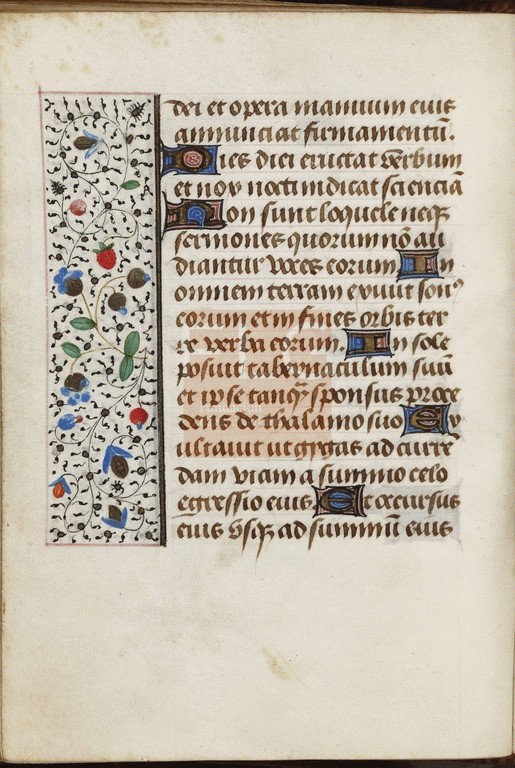 dei et opera manuum eius
annunciat firmamentū.
Dies diei eructat verbum
et nox nocti indicat scienciā
Non sunt loquele neqꝫ
sermones quorum nō au
diantur voces eorum In
omnem terram exiuit sonꝰ
eorum et in fines orbis ter
re verba eorum In sole
posuit tabernaculum suū
et ipse tanqꝫ sponsus proce
dens de thalamo suo Ex
ultauit ut gigas ad curre
dam viam a summo celo
egressio eius Et occursus
eius vsqꝫ ad summū eius